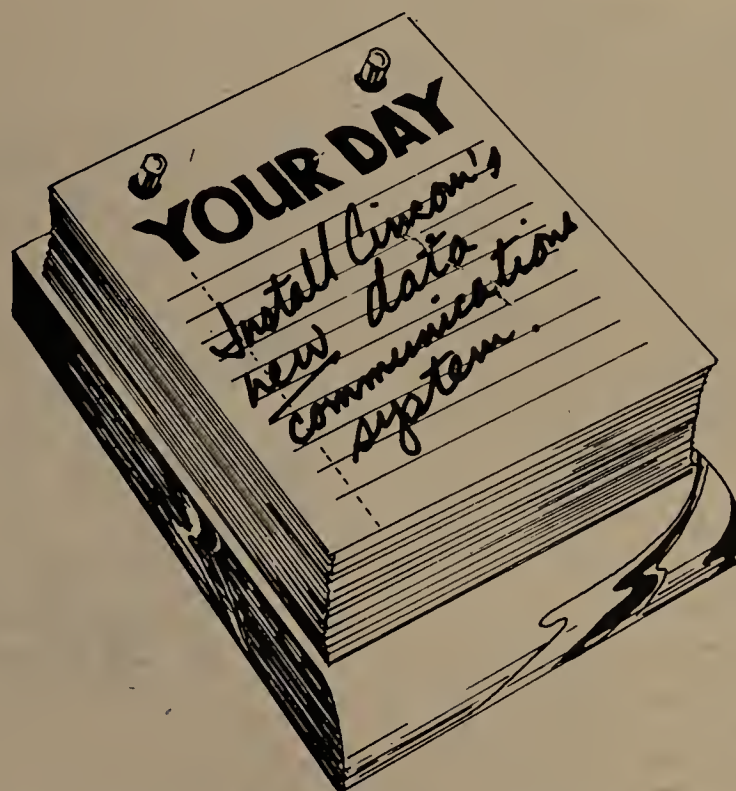 YOUR DAY
Install Cincom's
new data
communications
system.